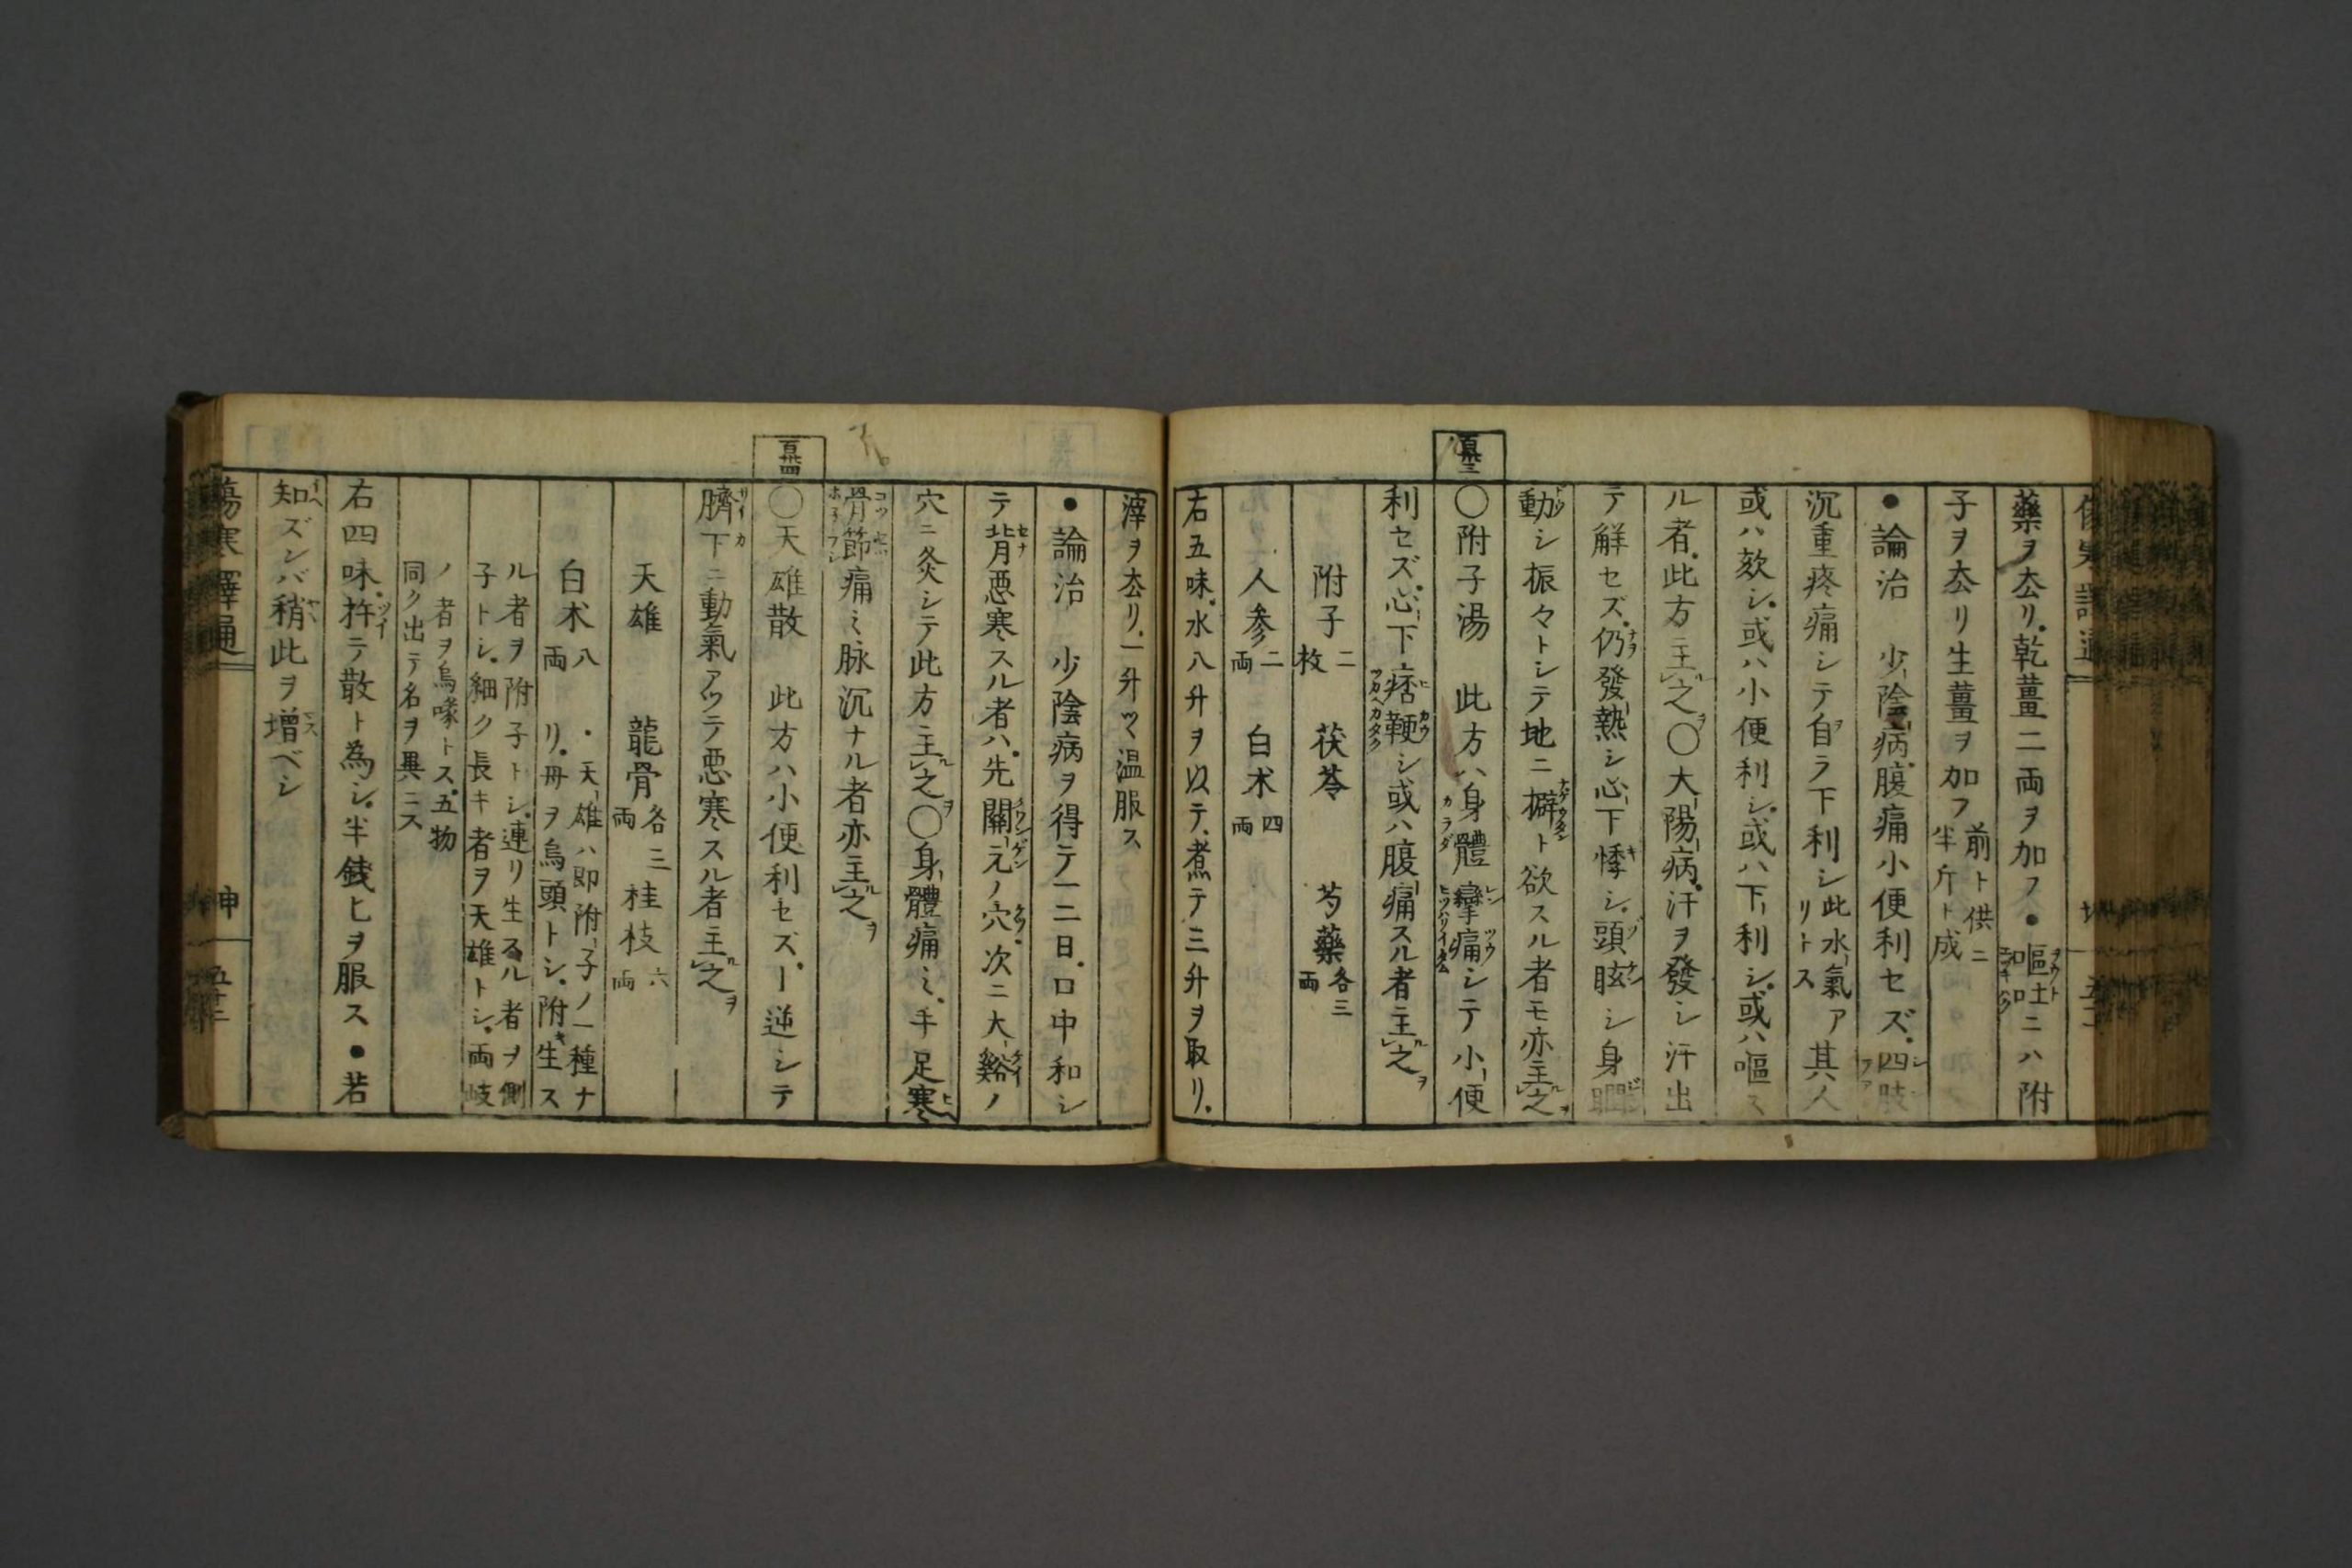 藥ヲ厺リ乾薑二両ヲ加フ●嘔吐ニハ附
子ヲ厺リ生薑ヲ加フ前ト供ニ半斤ト成
●論治　少陰病腹痛小便利セズ四肢
沉重疼痛シテ自ラ下利シ此水氣アリトス其人
或ハ欬シ或ハ小便利シ或ハ下利シ或ハ嘔ス
ル者此方主之〇大陽病汗ヲ發シ汗出
テ解セズ仍發熱シ心下悸シ頭眩シ身瞤
動シ振々トシテ地ニ擗ト欲スル者モ亦主之
百卅三
〇附子湯　此方ハ身體攣痛シテ小便
利セズ心下痞鞕シ或ハ腹痛スル者主之
附子二枚　茯苓　芍藥各三両
人參二両　白朮四両
右五味水八升ヲ以テ煮テ三升ヲ取リ
滓ヲ厺リ一升ツヽ温服ス
●論治　少陰病ヲ得テ一二日口中和シ
テ背悪寒スル者ハ先關元ノ穴次ニ大谿ノ
穴ニ灸シテ此方主之〇身體痛ミ手足寒ヘ
骨節痛ミ脉沉ナル者亦主之
百卅四
〇天雄散　此方ハ小便利セズ上逆シテ
臍下ニ動氣アツテ悪寒スル者主之
天雄　龍骨各三両　桂枝六両
白朮八両　・天雄ハ即附子ノ一種ナリ母ヲ烏頭トシ附生ス
ル者ヲ附子トシ連リ生ズル者ヲ側子トシ細ク長キ者ヲ天雄トシ両岐
ノ者ヲ烏喙トス五物同ク出テ名ヲ異ニス
右四味杵テ散ト為シ半錢匕ヲ服ス●若
知ズンバ稍此ヲ増ベシ
傷寒譯通　坤　五十三